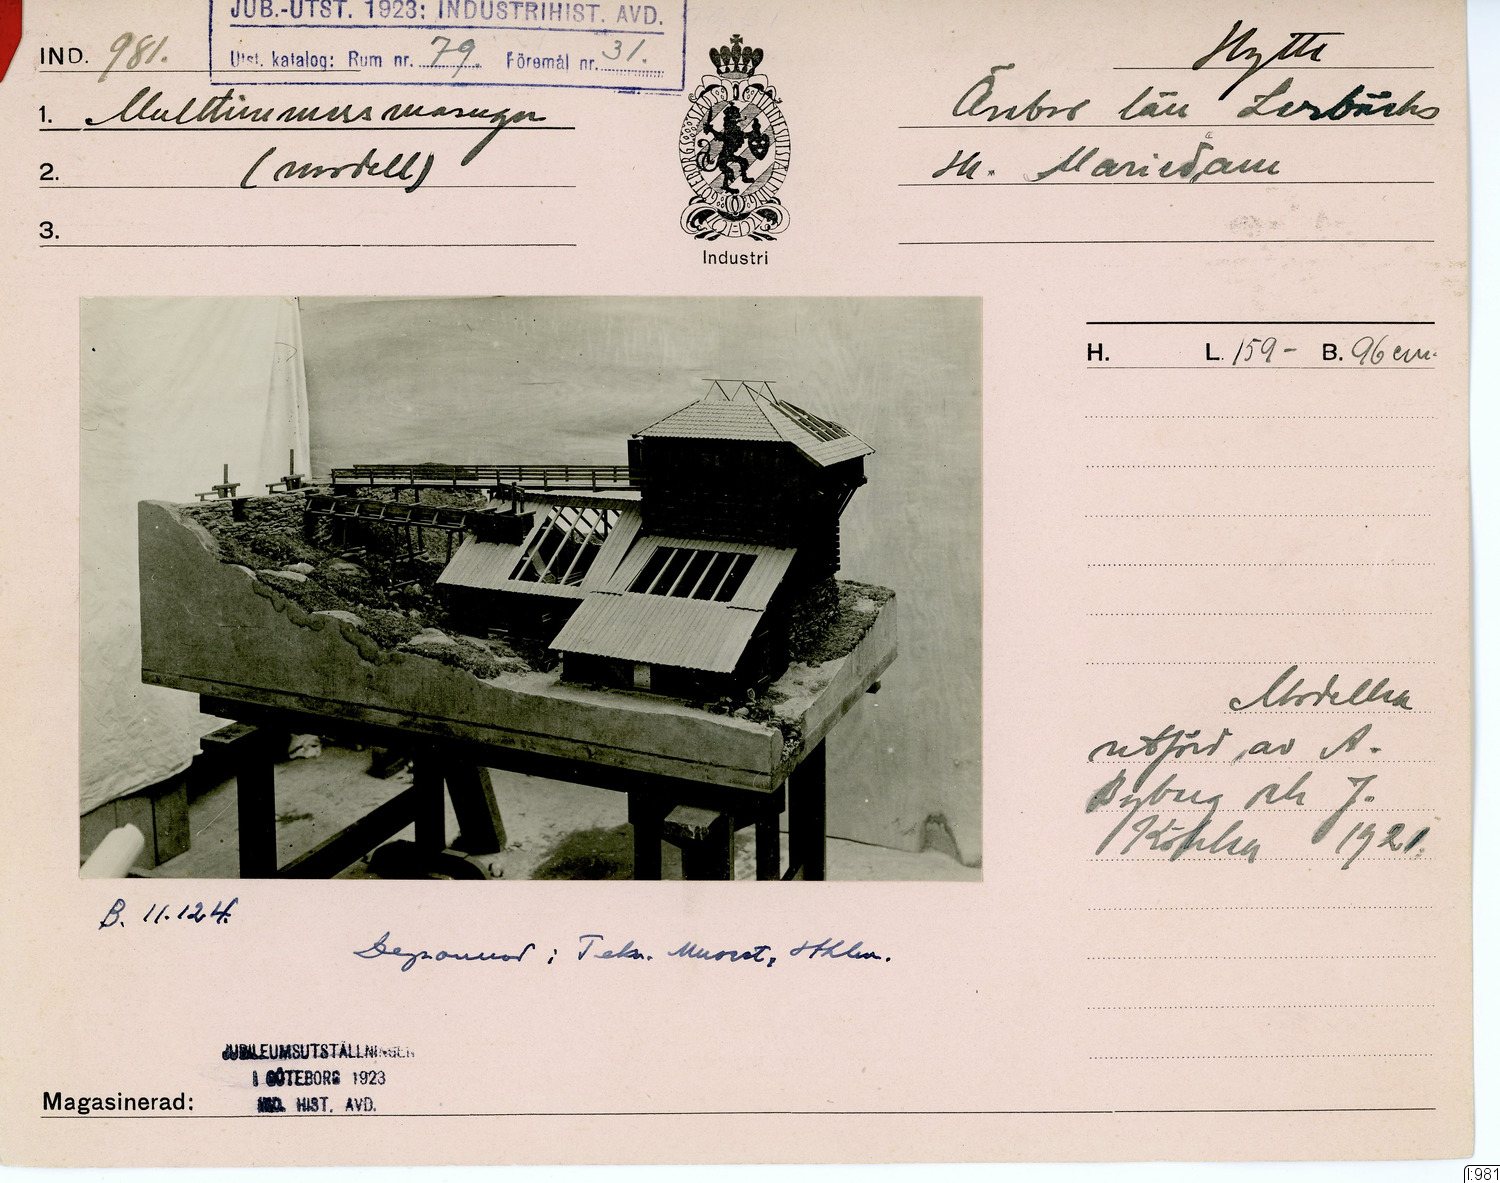 JUB.-UTST. 1923: INDUSTRIHIST. AVD.
Utst. katalog: Rum nr. 79. Föremål nr. 31.
IND. 981.
1. Multimmersmasugn
2. (modell)
3.
GÖTEBORGS STADS MINNESUTSTÄLLNING
Industri
Hytte
Örebro län Lerbäcks
sn. Mariedam
H. L. 159- B. 96 cm.
Modellen
utförd av A.
Nyberg och J.
Köhler 1921.
B. 11.124.
Deponerad i Tekn. Museet, Sthlm.
JUBILEUMSUTSTÄLLNINGEN
I GÖTEBORG 1923
IND. HIST. AVD.
Magasinerad:
I:981